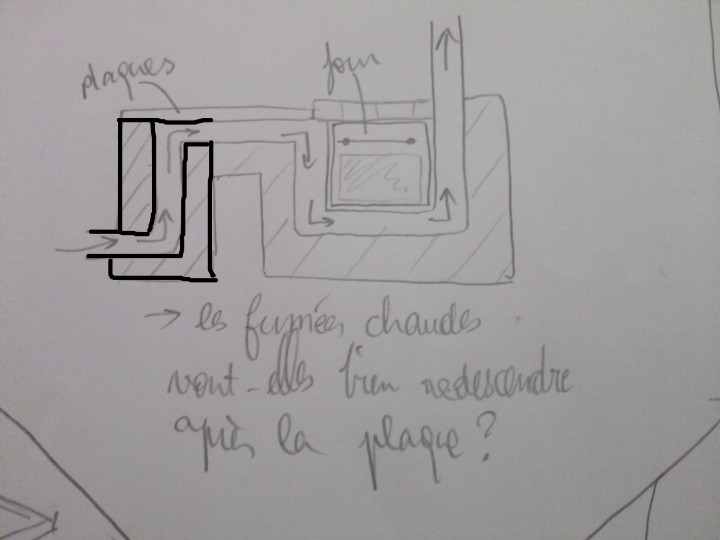 plaques
four
→ les fumées chaudes
vont-elles bien redescendre
après la plaque ?